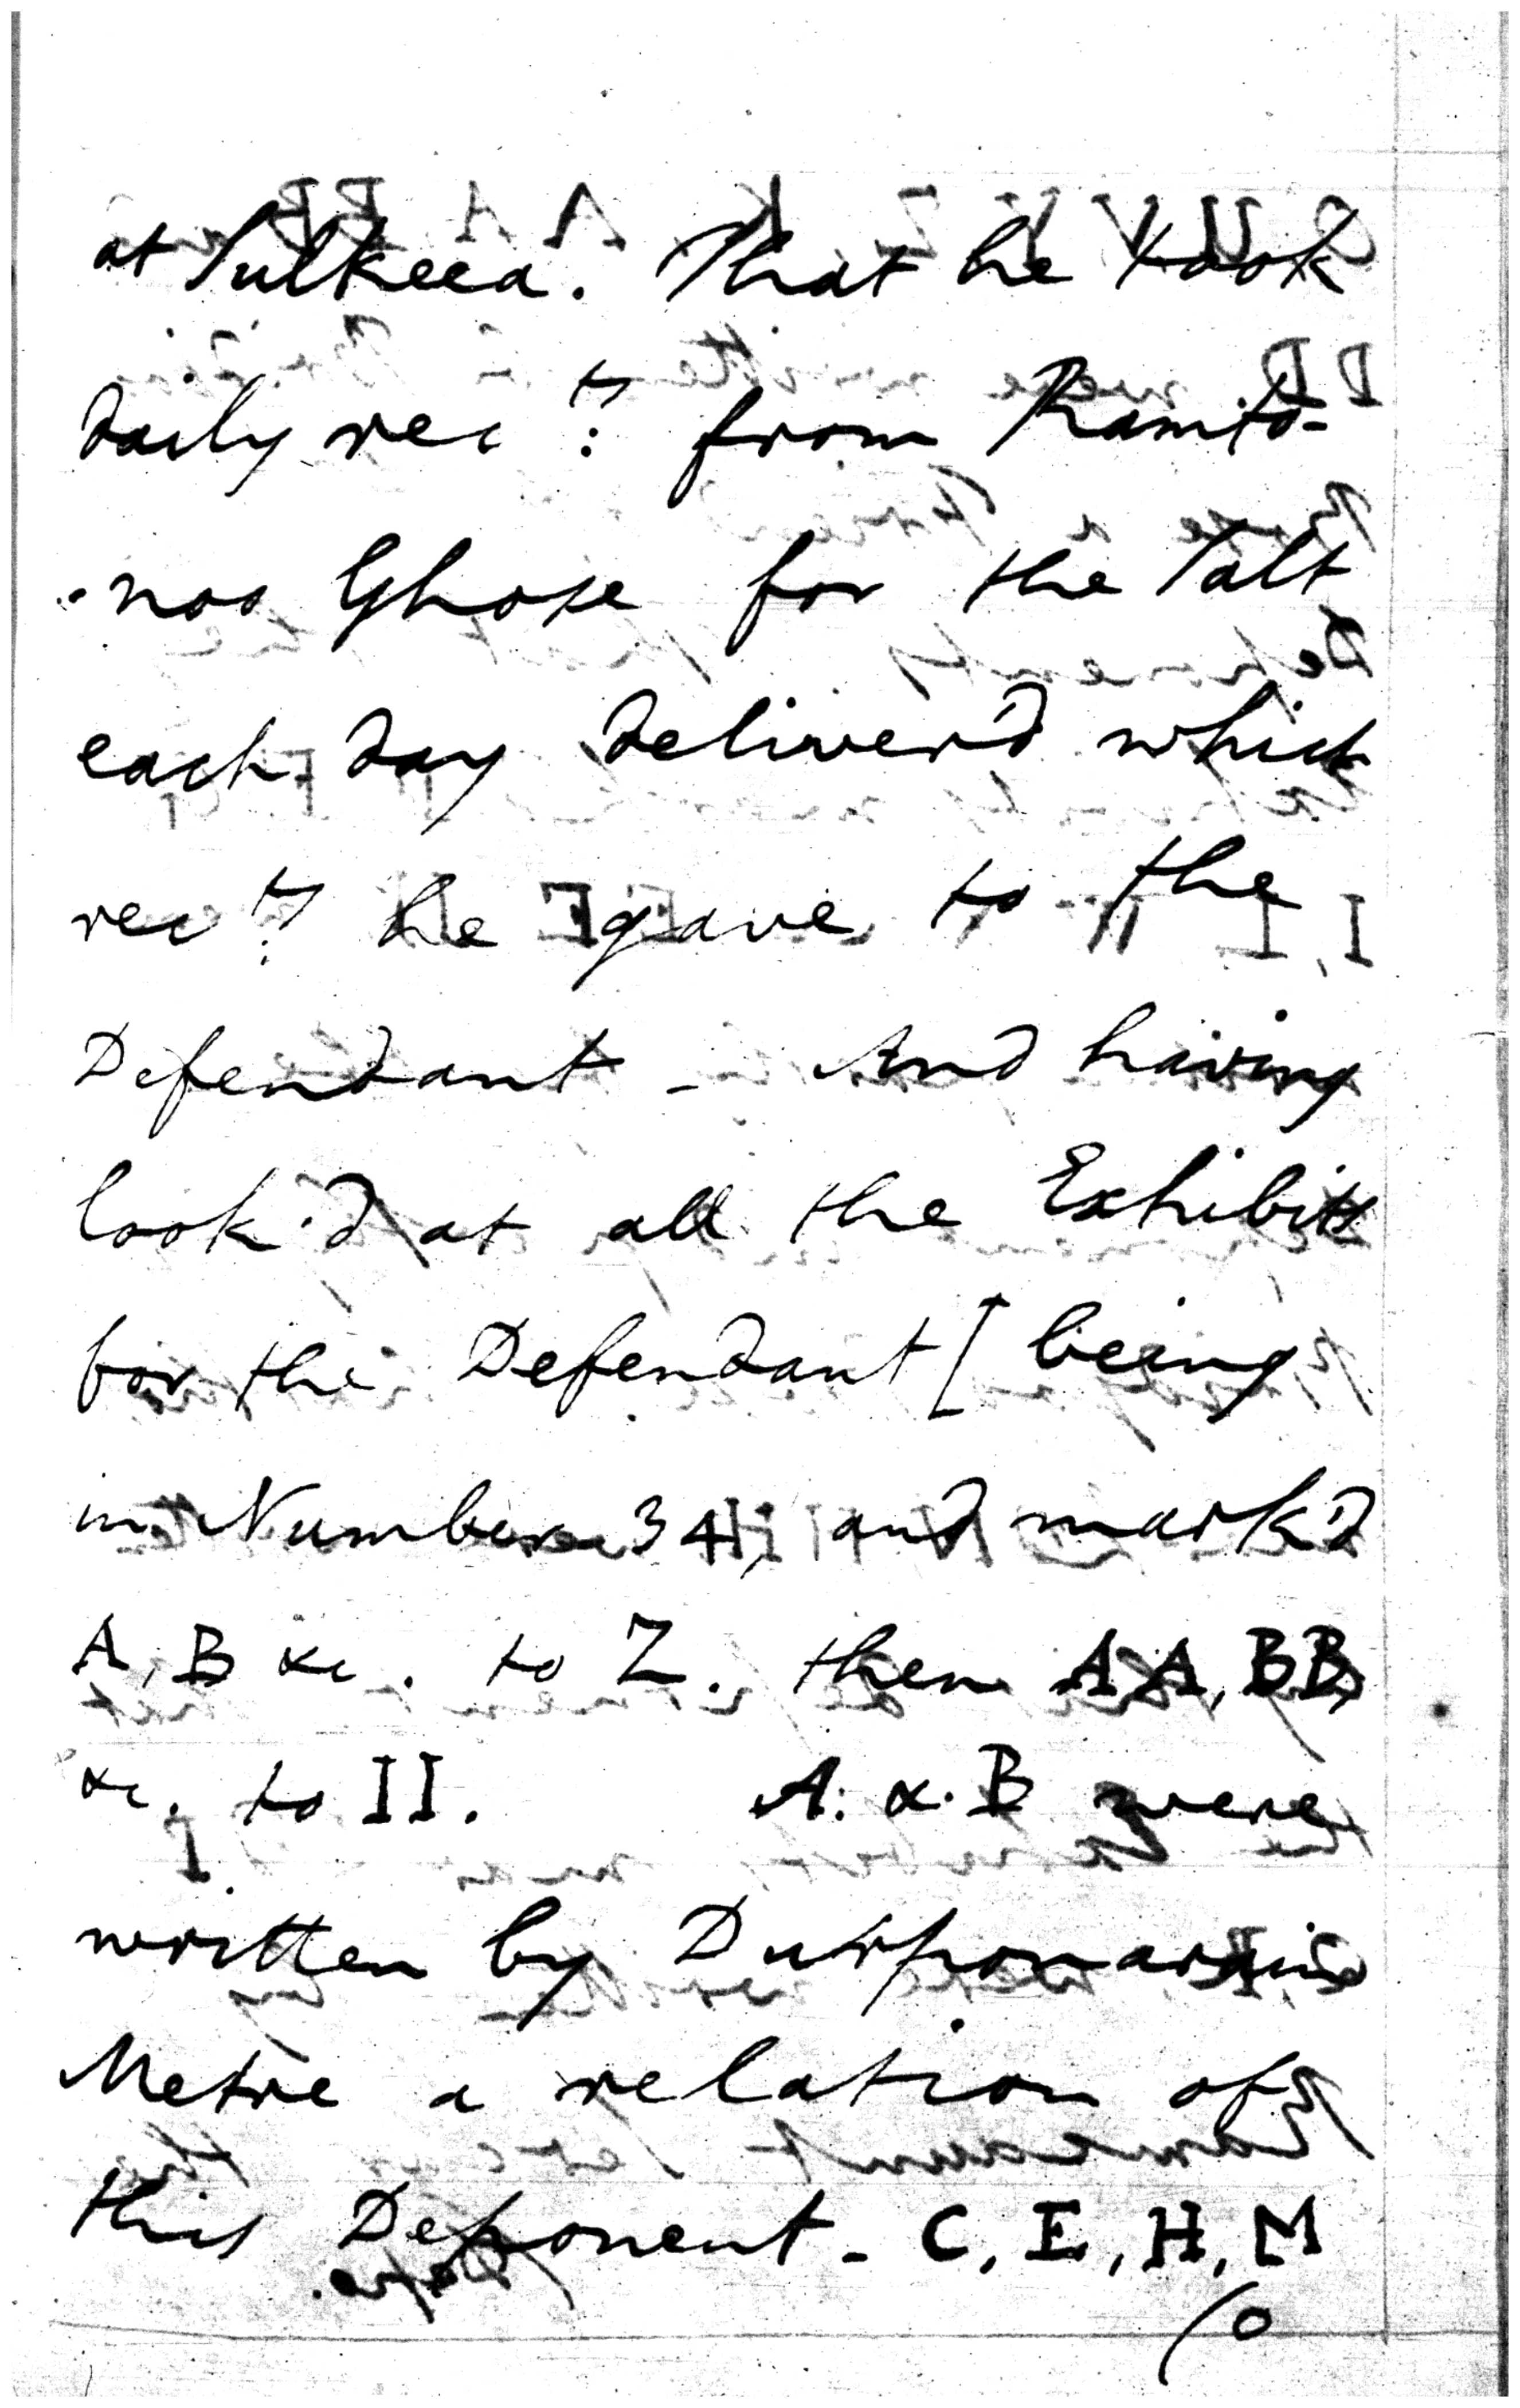 at Sulkeea. That he took
daily rec.ts from Ramto-
-noo Ghose for the Salt
each day deliver'd which
rec.ts he gave to the
Defendant - And having
look'd at all the Exhibits
for the Defendant [being
in Number 34, and mark'd
A, B &c. to Z. then AA, BB,
&c. to II. A. & B were
written by Durponarain
Metre a relation of
this Deponent - C, E, H, M
(O